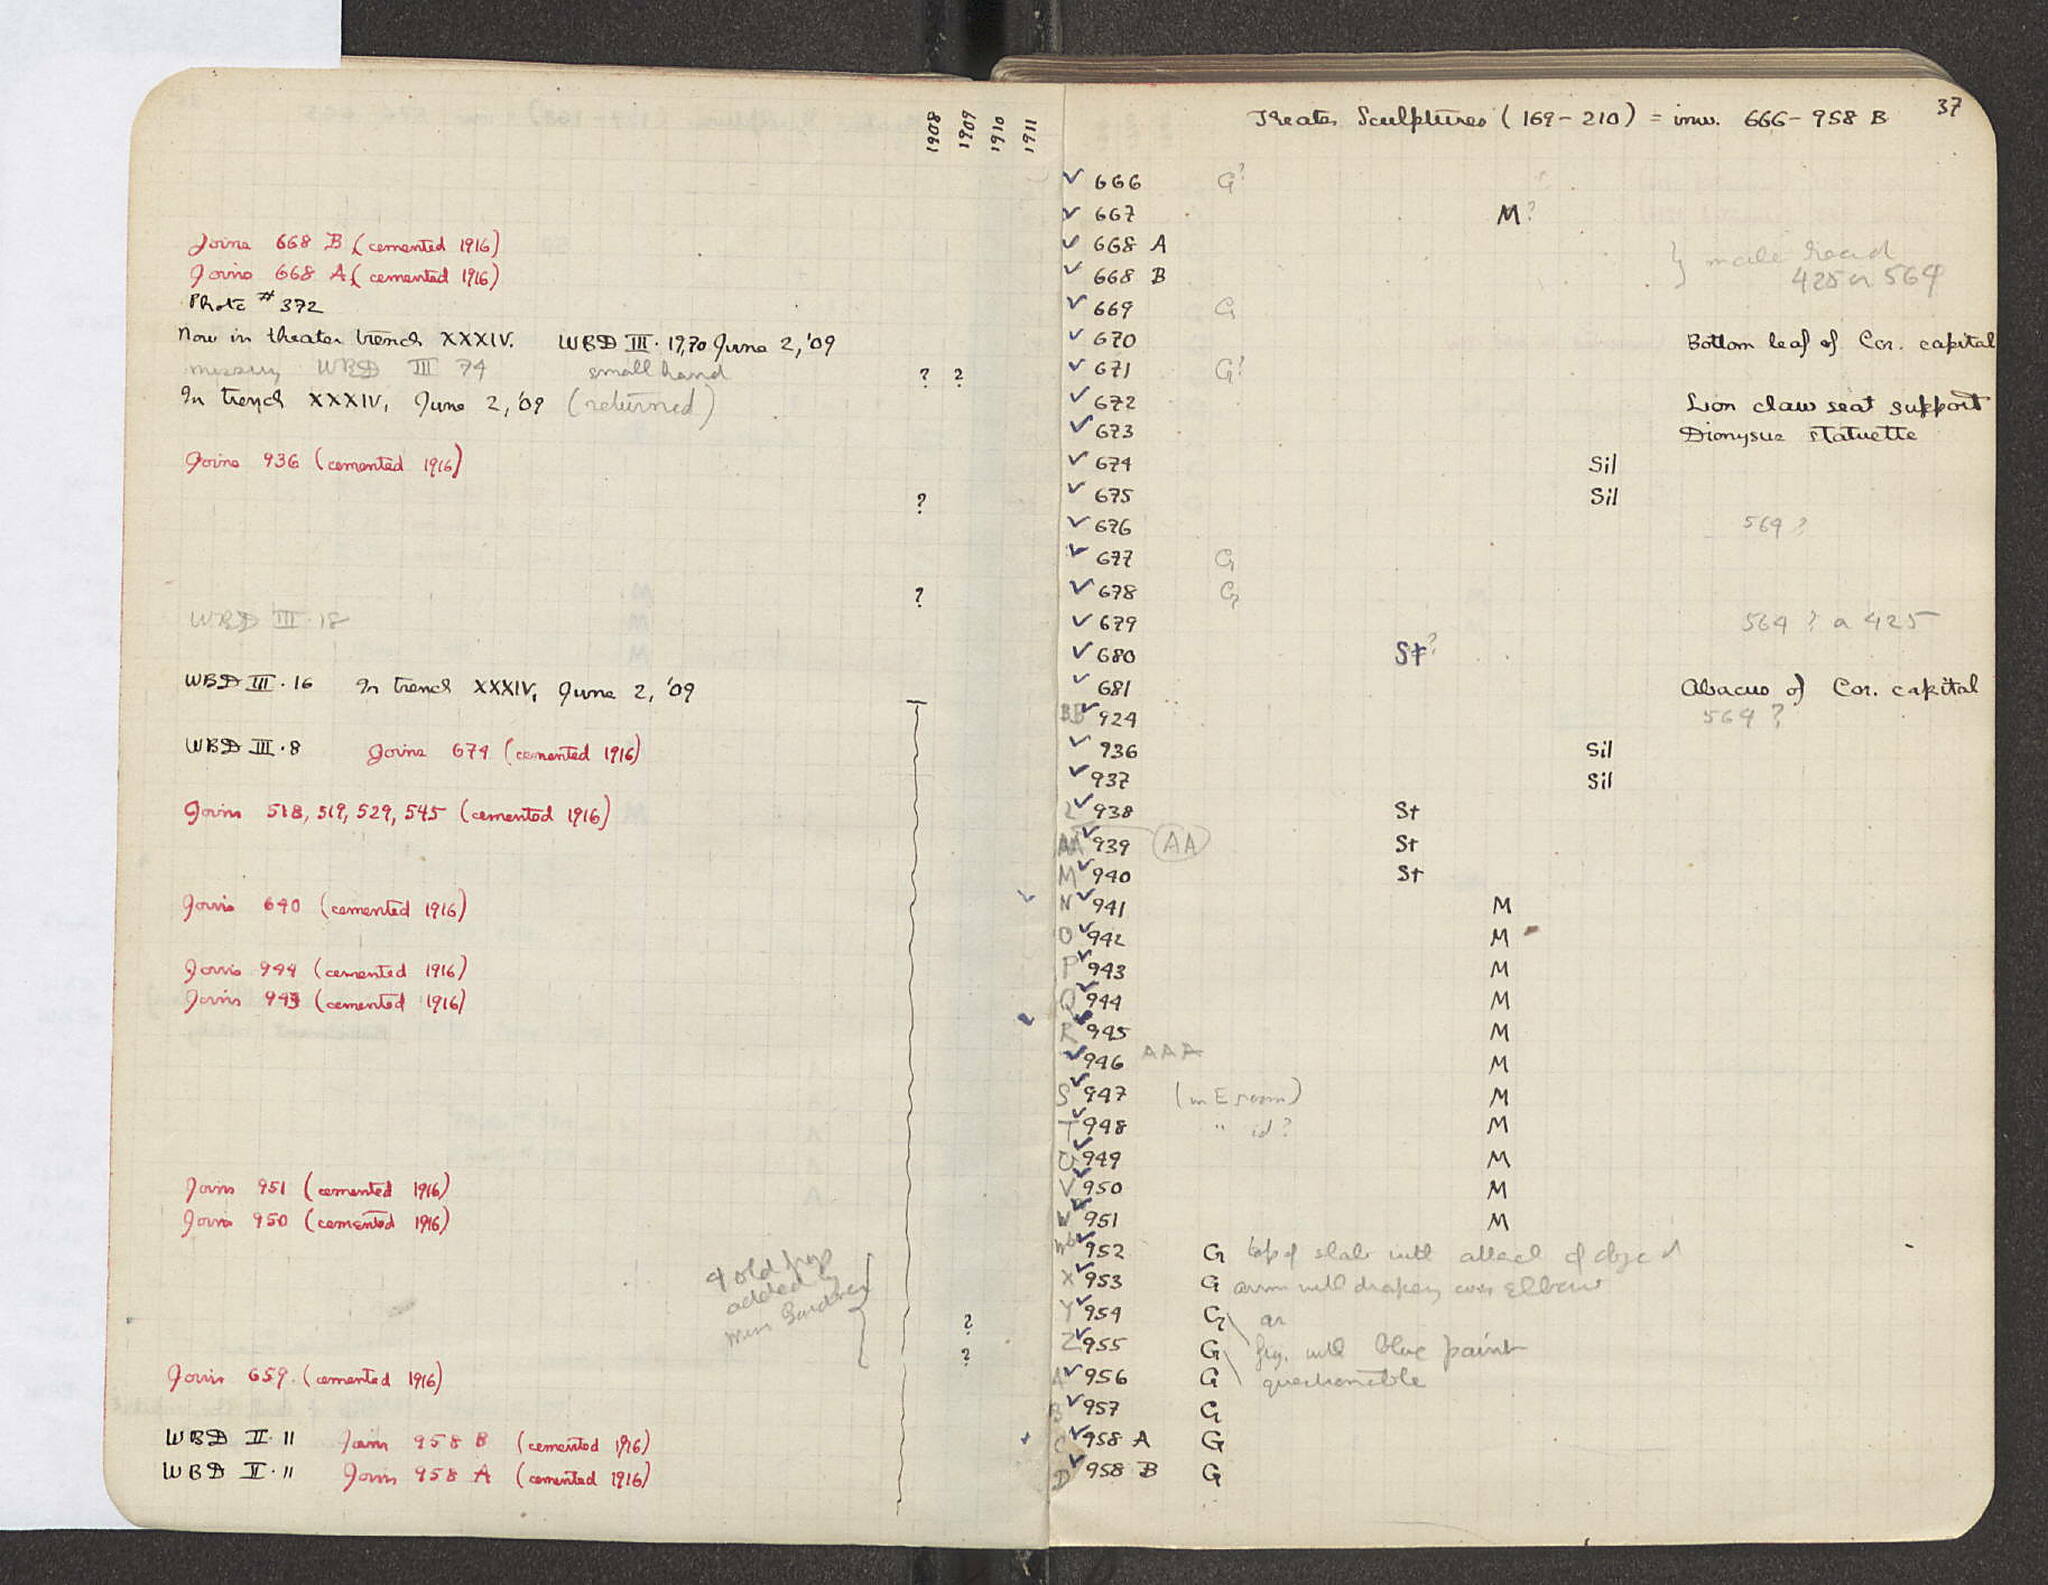 1908 1909 1910 1911
Joins 668 B (cemented 1916)
Joins 668 A (cemented 1916)
Photo # 372
Now in theater trench XXXIV. WBD III. 19,70 June 2, '09
missing WBD III 74 small hand ? ?
In trench XXXIV, June 2, '09 (returned)
Joins 936 (cemented 1916)
?
?
WBD III. 18
WBD III. 16 In trench XXXIV, June 2, '09
WBD III. 8 Joins 674 (cemented 1916)
Joins 518, 519, 529, 545 (cemented 1916)
Joins 640 (cemented 1916)
Joins 944 (cemented 1916)
Joins 943 (cemented 1916)
Joins 951 (cemented 1916)
Joins 950 (cemented 1916)
4 old frgs
added by
Miss Gardiner
?
?
Joins 659. (cemented 1916)
WBD II. 11 Joins 958 B (cemented 1916)
WBD II. 11 Joins 958 A (cemented 1916)
Theater Sculptures (169-210) = inv. 666-958 B 37
✓ 666 G?
✓ 667 M?
✓ 668 A } male head
✓ 668 B 425 or 564
✓ 669 G
✓ 670 Bottom leaf of Cor. capital
✓ 671 G?
✓ 672 Lion claw seat support
✓ 673 Dionysus statuette
✓ 674 Sil
✓ 675 Sil
✓ 676 564 ?
✓ 677 G
✓ 678 G
✓ 679 564 ? or 425
✓ 680 St?
✓ 681 Abacus of Cor. capital
BB ✓ 924 564 ?
✓ 936 Sil
✓ 937 Sil
L ✓ 938 St
AA ✓ 939 AA St
M ✓ 940 St
N ✓ 941 M
O ✓ 942 M
P ✓ 943 M
Q ✓ 944 M
R ✓ 945 M
✓ 946 AAA M
S ✓ 947 (in E room) M
T ✓ 948 " id ? M
U ✓ 949 M
V ✓ 950 M
W ✓ 951 M
✓ 952 G top of slab with attach of object
X ✓ 953 G arm with drapery over elbow
Y ✓ 954 G
Z ✓ 955 G frg. with blue paint
A ✓ 956 G questionable
B ✓ 957 G
C ✓ 958 A G
D ✓ 958 B G